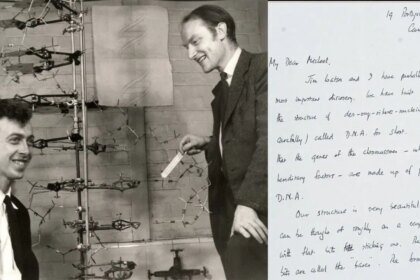 19 Portugal
Cam
My Dear Michael,
Jim Watson and I have probably
most important discovery. We have built
the structure of des-oxy-ribose-nucleic
carefully) called D.N.A. for short.
that the genes of the chromosomes - w
hereditary factors - are made up of
D.N.A.
Our structure is very beautiful.
can be thought of roughly as a very
with flat bits sticking out. The
bits are called the 'bases'. The